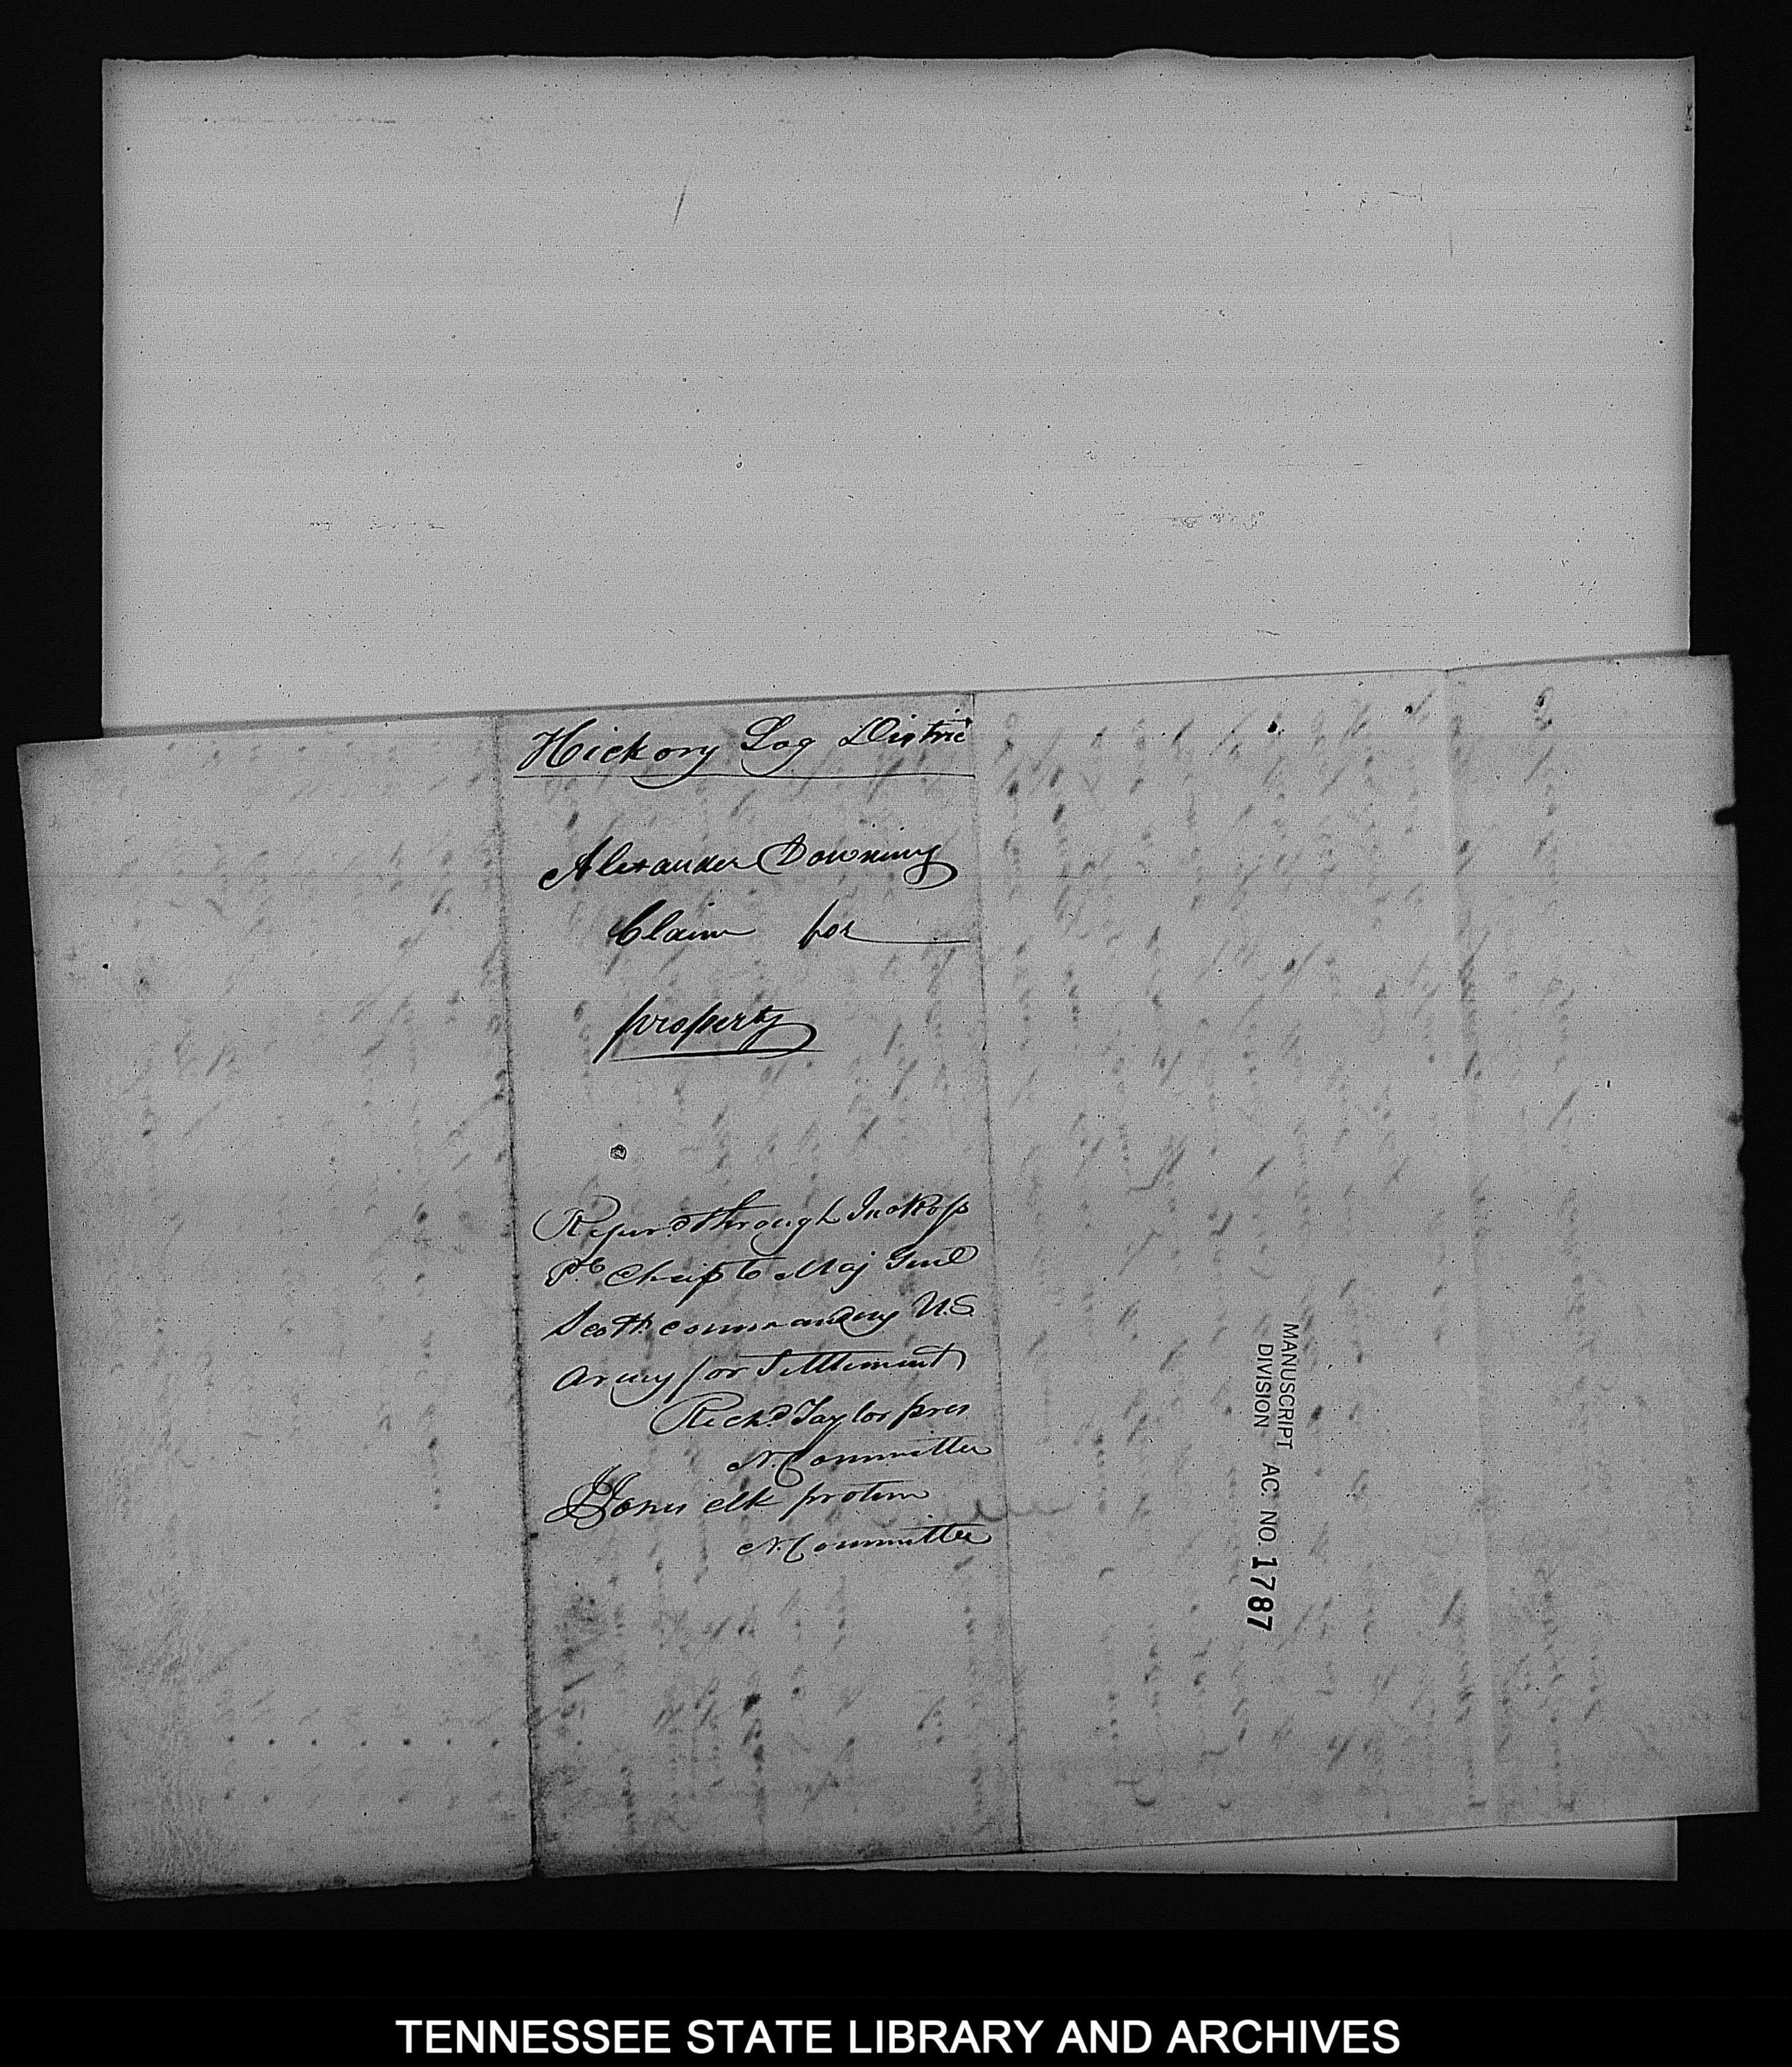 Hickory Log Distric
Alexander Downing
Claim for
property
Refurd through Jno Ross
Pl Chief to Maj Genl
Scott commanding U.S.
Army for Settlement
Richd Taylor pres
N. Committee
Jones clk protem
N. Committee
MANUSCRIPT
DIVISION AC. NO. 1787
TENNESSEE STATE LIBRARY AND ARCHIVES